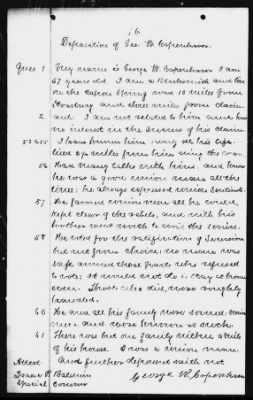 6
Deposition of Geo. W. Copenhaver.
Ques 1 My name is George W. Copenhaver I am
57 years old I am a Blacksmith and live
on the Capon Spring 10 miles from
Strasburg and three miles from claim.
2 ant. I am not related to him and have
no interest in the success of his claim
I have known him all his life
lived 2½ miles from him during the war.
56 I had many talks with him, and knew
he was a good union man all the
time, he always expressed union sentiments.
57 He favored union all he could,
kept clear of the rebels, and with his
brother went north to avoid the service.
58 He voted for the ratification of Secession
but not from choice; no man was
safe around those parts who refused
to vote; it would not do to stay at home
even. Those who did, were roughly
handled.
60 He and all his family were union
men and were known as such.
61 There was but one family within
of his house. I was a union man.
And further deponent saith not
Attest
George W. Copenhaver
Isaac P. Baldwin
Special Commr